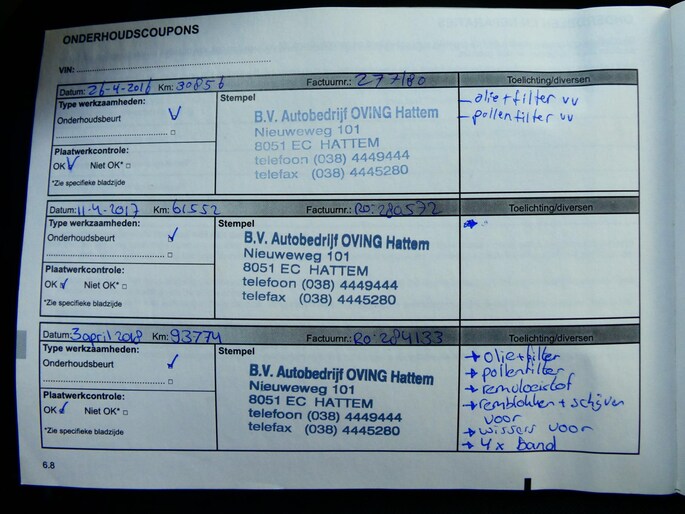 ONDERHOUDSCOUPONS
VIN:
Datum: 26-4-2016 Km: 30856 Factuurnr.: 277180 Toelichting/diversen
Type werkzaamheden:
Onderhoudsbeurt
Plaatwerkcontrole:
OK Niet OK*
*Zie specifieke bladzijde
Stempel
B.V. Autobedrijf OVING Hattem
Nieuweweg 101
8051 EC HATTEM
telefoon (038) 4449444
telefax (038) 4445280
- olie+filter vv
- pollenfilter vv
Datum: 11-4-2017 Km: 61552 Factuurnr.: RO: 280572 Toelichting/diversen
Type werkzaamheden:
Onderhoudsbeurt
Plaatwerkcontrole:
OK Niet OK*
*Zie specifieke bladzijde
Stempel
B.V. Autobedrijf OVING Hattem
Nieuweweg 101
8051 EC HATTEM
telefoon (038) 4449444
telefax (038) 4445280
Datum: 3 april 2018 Km: 93774 Factuurnr.: RO: 284133 Toelichting/diversen
Type werkzaamheden:
Onderhoudsbeurt
Plaatwerkcontrole:
OK Niet OK*
*Zie specifieke bladzijde
Stempel
B.V. Autobedrijf OVING Hattem
Nieuweweg 101
8051 EC HATTEM
telefoon (038) 4449444
telefax (038) 4445280
→ olie+filter
→ pollenfilter
→ remvloeistof
→ remblokken + schijven
voor
→ wissers voor
→ 4x band
6.8